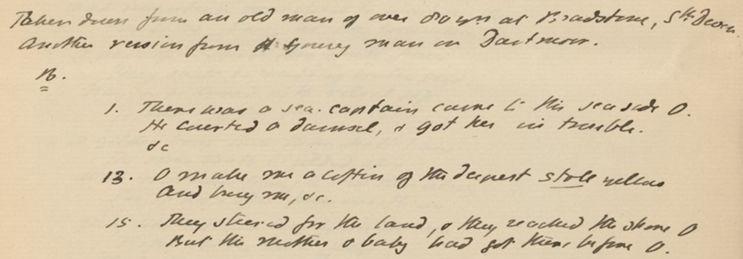 Taken down from an old man of over 80 yrs at Bradstone, Sth Devon.
Another version from a young man on Dartmoor.
B.
1. There was a sea-captain came to the sea side O.
He courted a damsel, & got her in trouble.
&c
13. O make me a coffin of the deepest stole yellow
And bury me, &c.
15. They steered for the land, & they reached the shore O
But the mother & baby had got there before O.